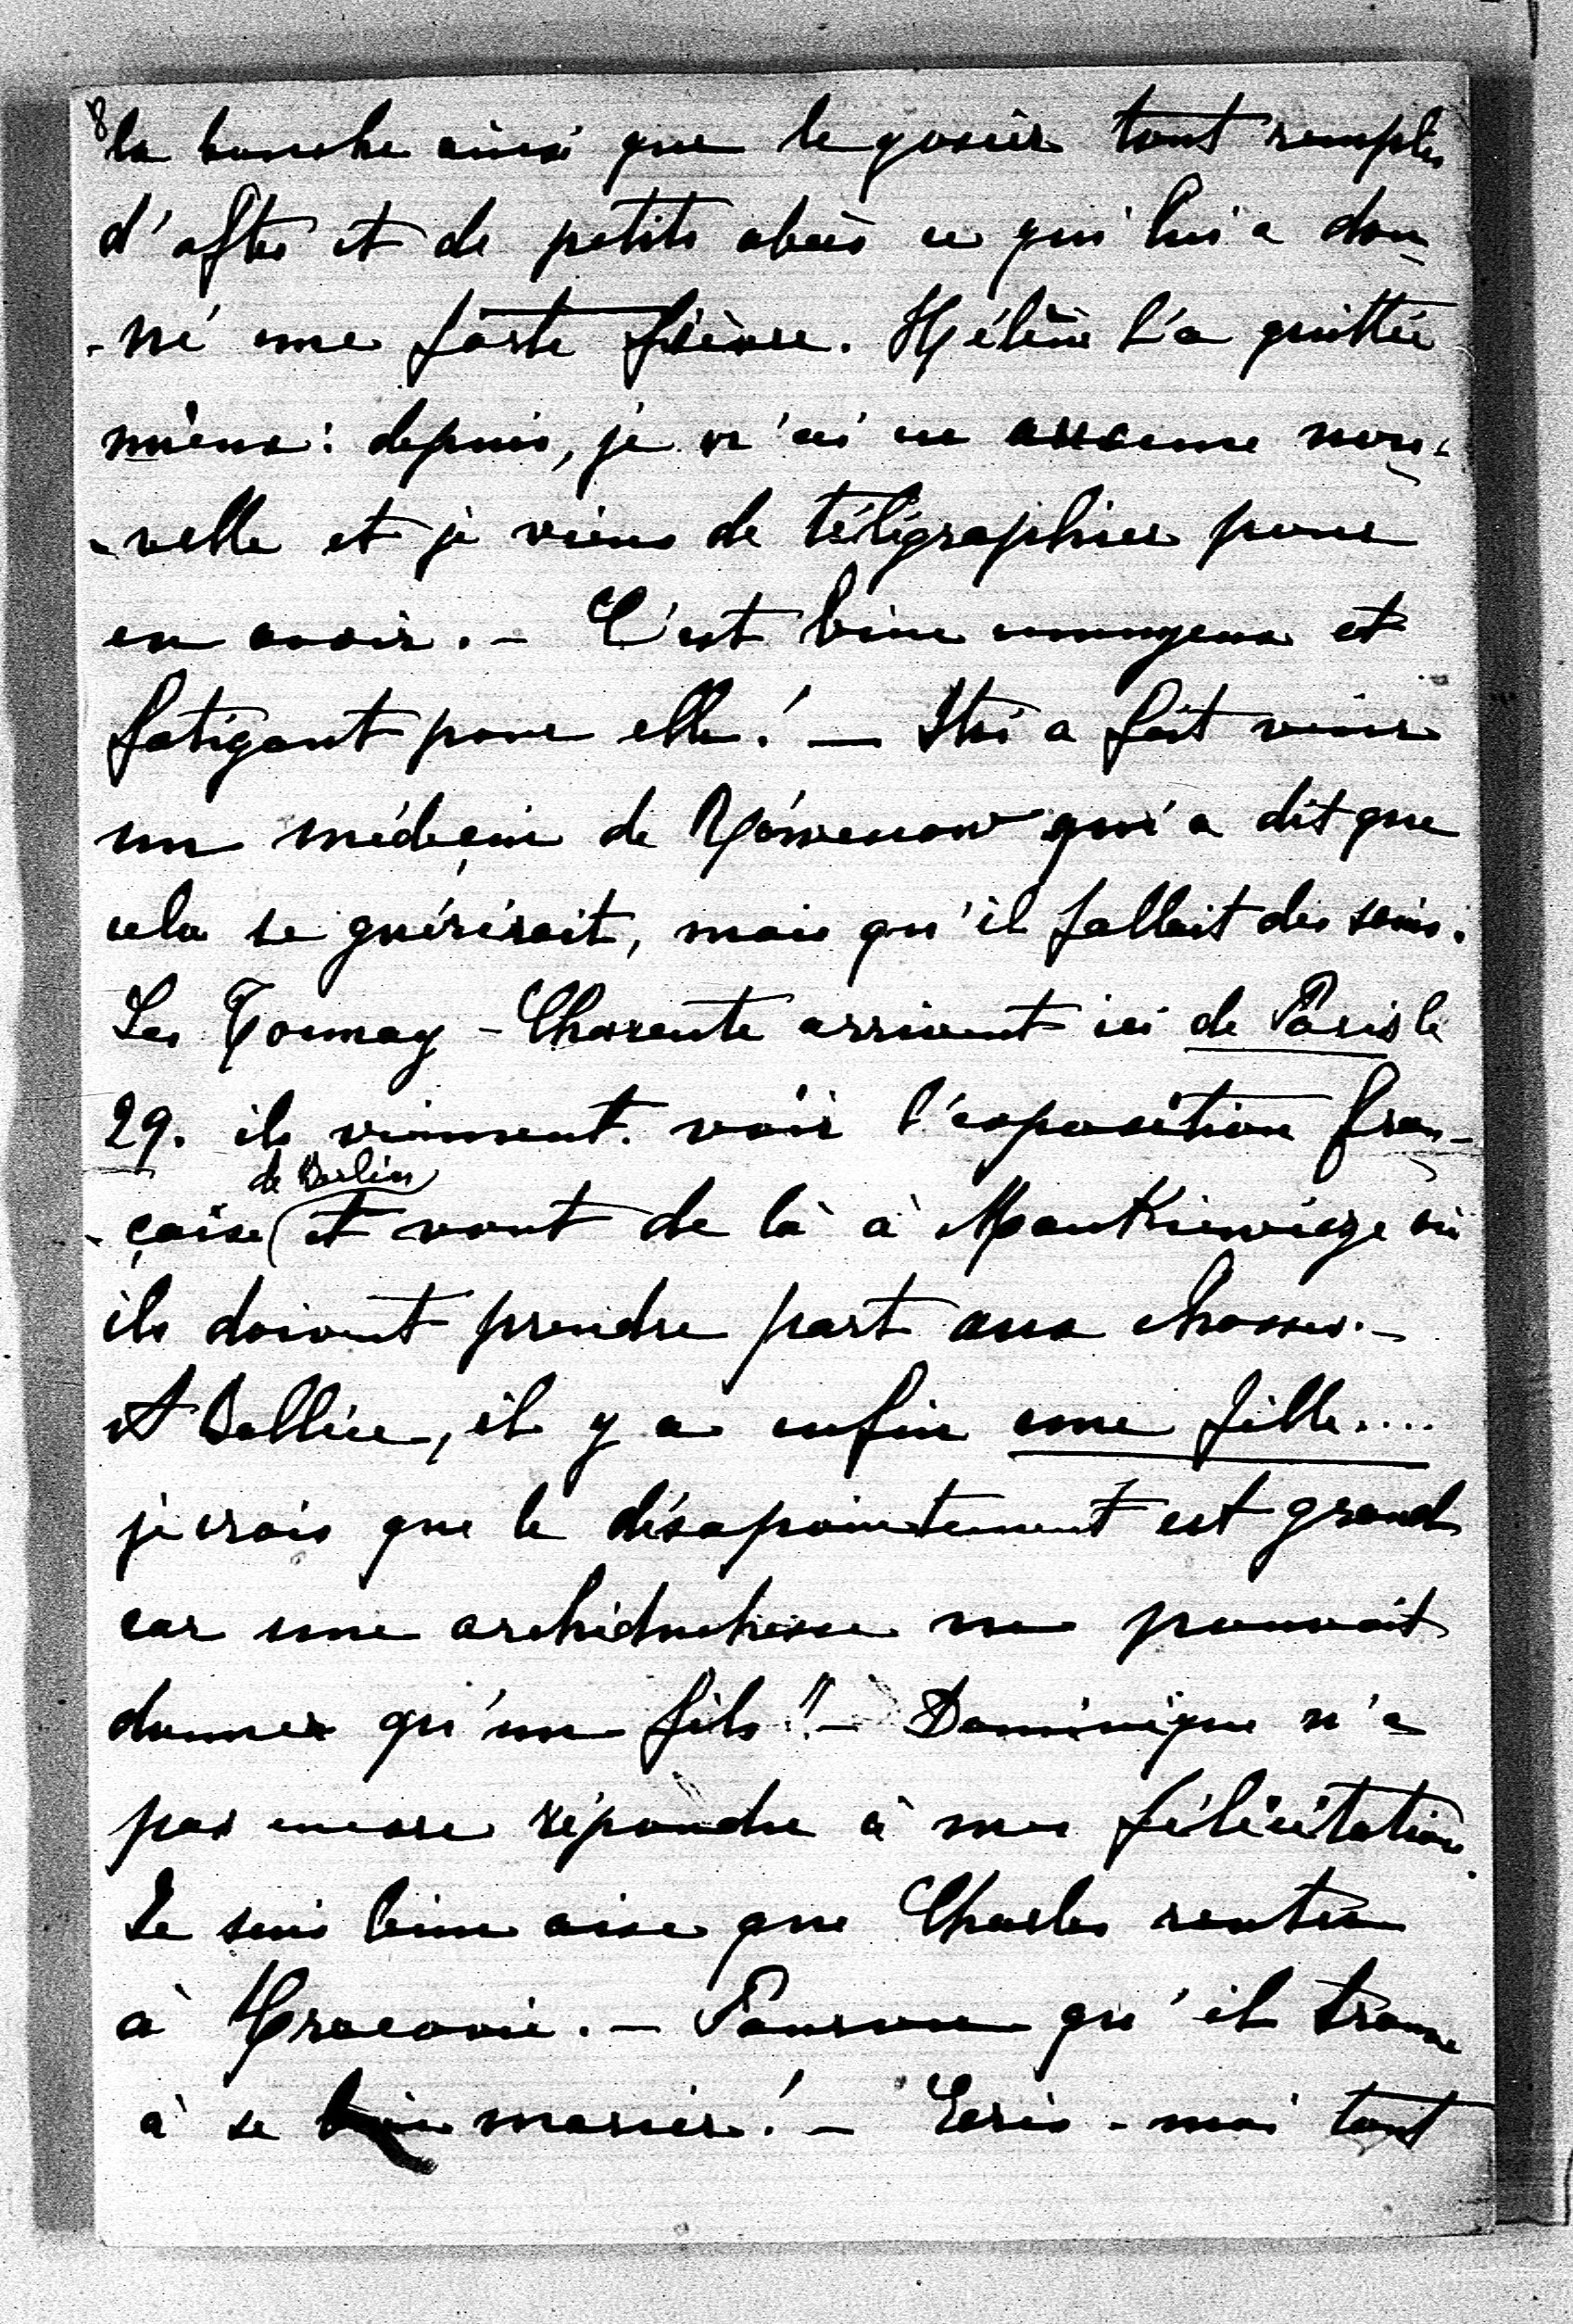 8
la bouche ainsi que le gosier tout remplis
d'aftes et de petits abcès ce qui lui a don-
-né une forte fièvre. Hélène l'a quittée
mieux: depuis, je n'ai eu aucune nou-
-velle et je viens de télégraphier pour
en avoir. - C'est bien ennuyeux et
fatigant pour elle! — Itsi a fait venir
un médecin de qui a dit que
cela se guérirait, mais qu'il fallait des soins.
Les Tonnay - Charente arrivent ici de Paris le
29. ils viennent voir l'exposition fran-
de Berlin
-çaise et vont de là à Mankiewicze où
ils doivent prendre part aux chasses. -
A Ballice, il y a enfin une fille....
je crois que le désapointement est grand
car une archiduchesse ne pouvait
donner qu'un fils!! - Dominique n'a
pas encore répondu à mes félicitations.
Je suis bien aise que Charles rentre
à Cracovie. - Pourvu qu'il trouve
à se bien marier! - Ecris-moi tout